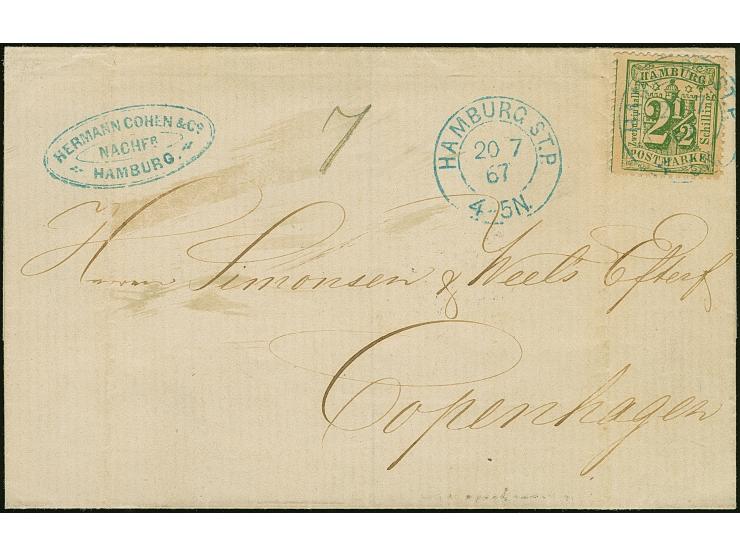 HERMANN COHEN & Co
NACHFR
HAMBURG
7
HAMBURG ST.P.
20 7
67
4-5N.
HAMBURG
2 1/2
Schilling
POSTMARKE
Herren Simonsen & Weel's Efterf
Copenhagen